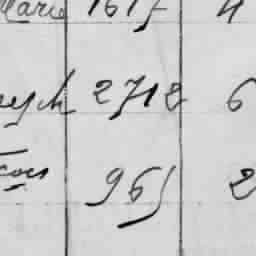 Marie 1617 4
2712 6
çois 965 2